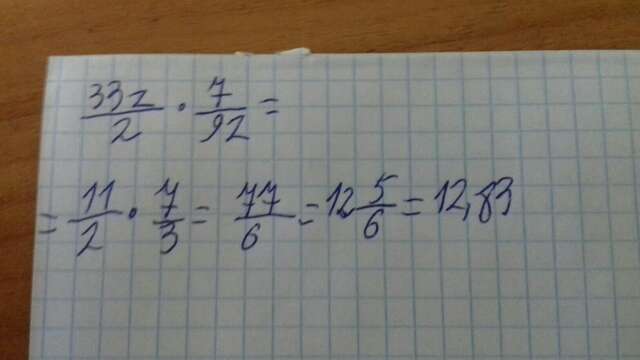 33z/2 · 7/9z =
= 11/2 · 7/3 = 77/6 = 12 5/6 = 12,83